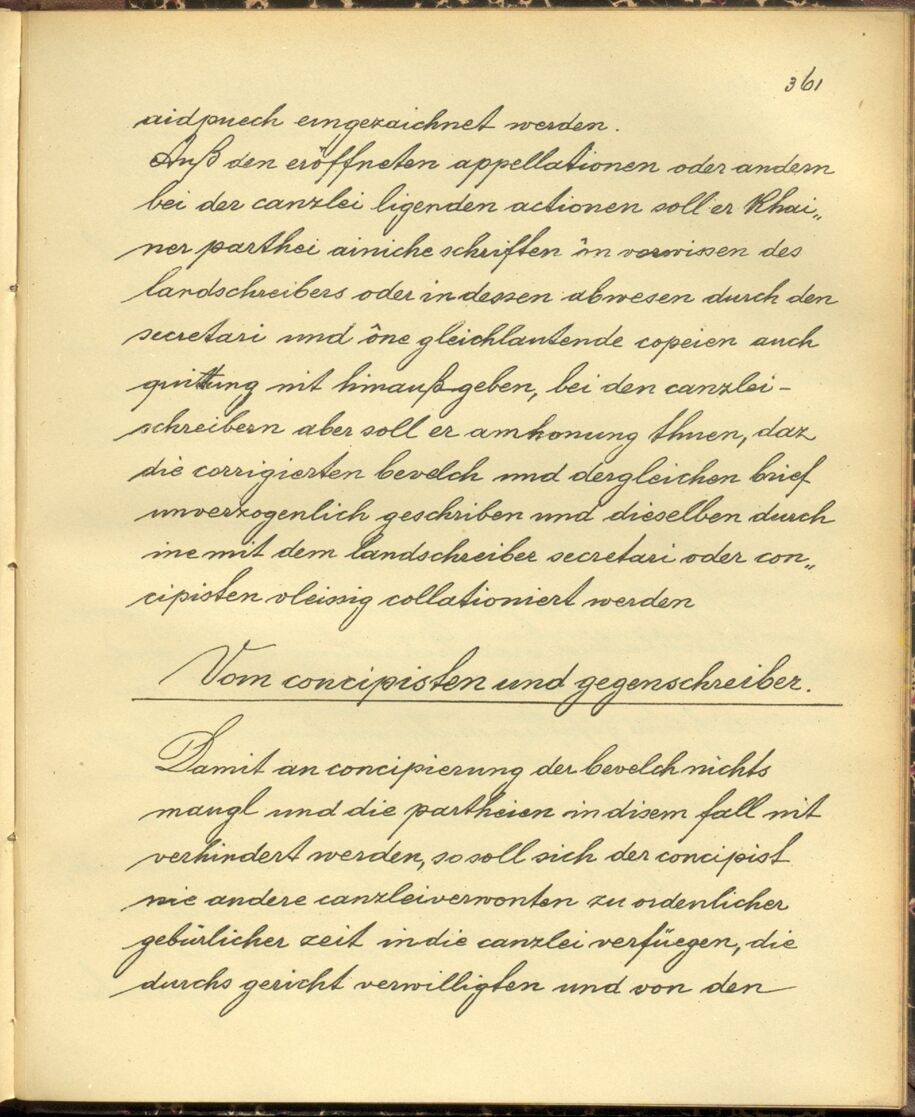 361
aidpuech eingezaichnet werden.
Auß den eröffneten appellationen oder andern
bei der canzlei ligenden actionen soll er khai„
ner parthei ainiche schriften on vorwissen des
landschreibers oder in dessen abwesen durch den
secretari und ône gleichlautende copeien auch
quittung nit hinauß geben, bei den canzlei-
schreibern aber soll er amhonung thuen, daz
die corrigierten bevelch und dergleichen brief
unverzogenlich geschriben und dieselben durch
ine mit dem landschreiber secretari oder con„
cipisten vleissig collationiert werden
Vom concipisten und gegenschreiber.
Damit an concipierung der bevelch nichts
mangl und die partheien in disem fall nit
verhindert werden, so soll sich der concipist
wie andere canzleiverwonten zu ordenlicher
gebürlicher zeit in die canzlei verfüegen, die
durchs gericht verwilligten und von den